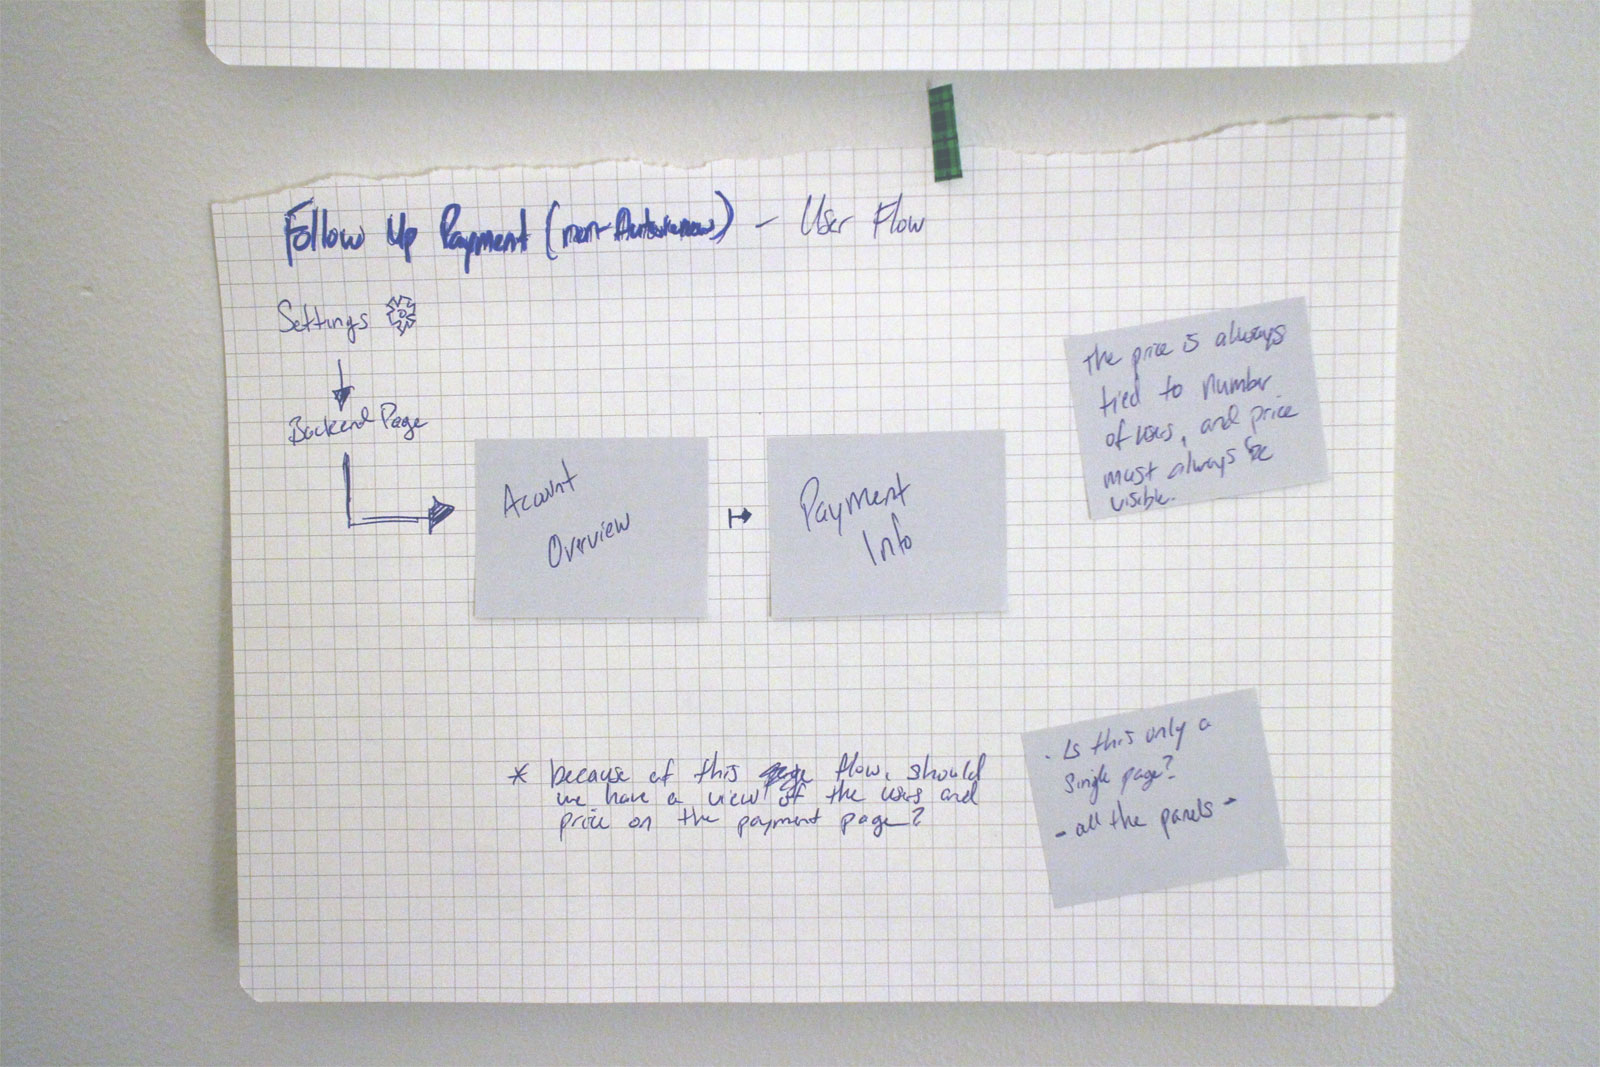 Follow Up Payment (non-Autorenew) - User Flow
Settings
Backend Page
Account
Overview
Payment
Info
the price is always
tied to number
of users, and price
must always be
visible.
* because of this flow, should
we have a view of the users and
price on the payment page?
· Is this only a
single page?
- all the panels -